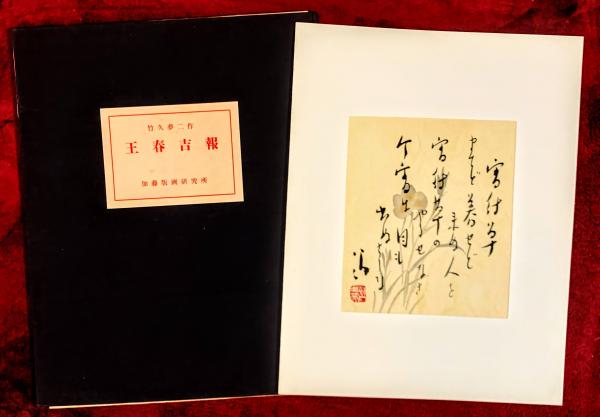 竹久夢二作
王春吉報
加藤版画研究所
宵待草
まてど暮せど
来ぬ人を
宵待草の
やるせなさ
今宵は月も
出ぬさうな